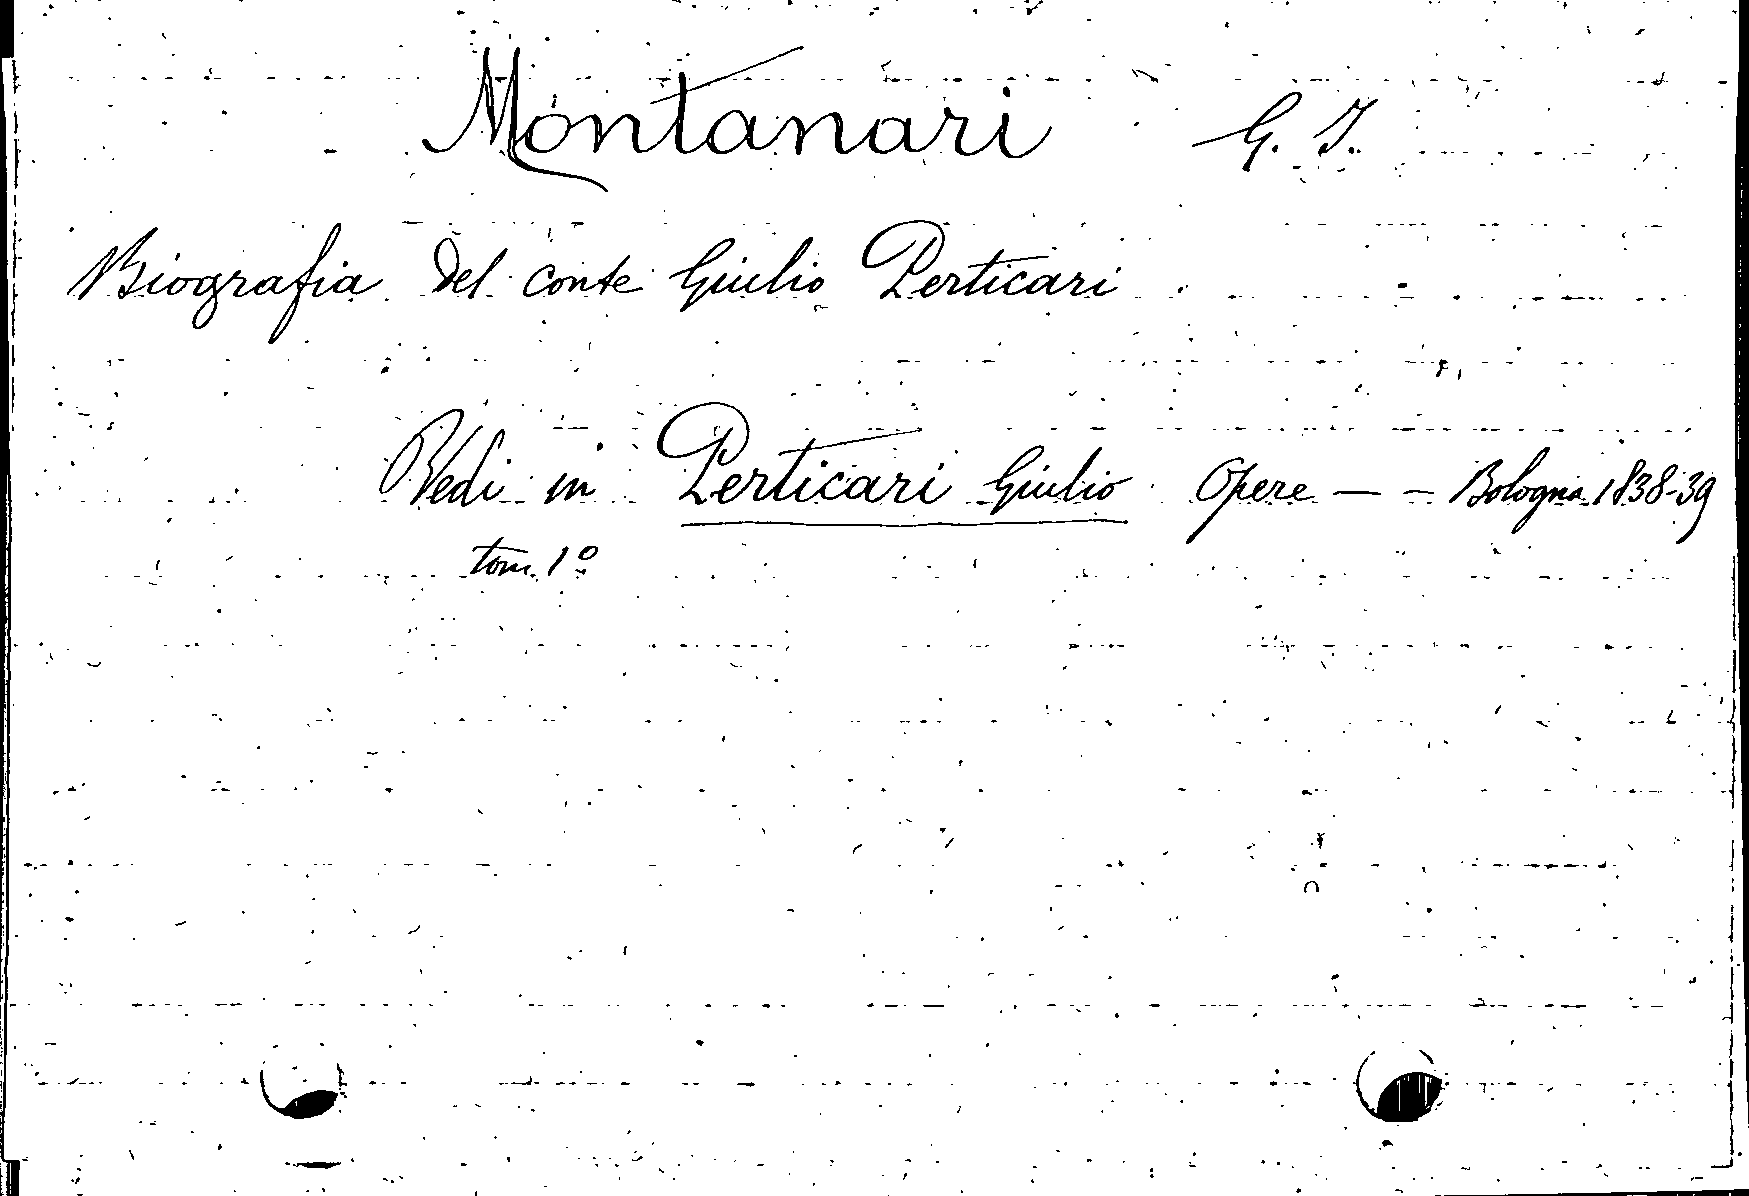 Montanari G. I.
Biografia del conte Giulio Perticari
Vedi in Perticari Giulio Opere — — Bologna 1838-39
tom. 1º